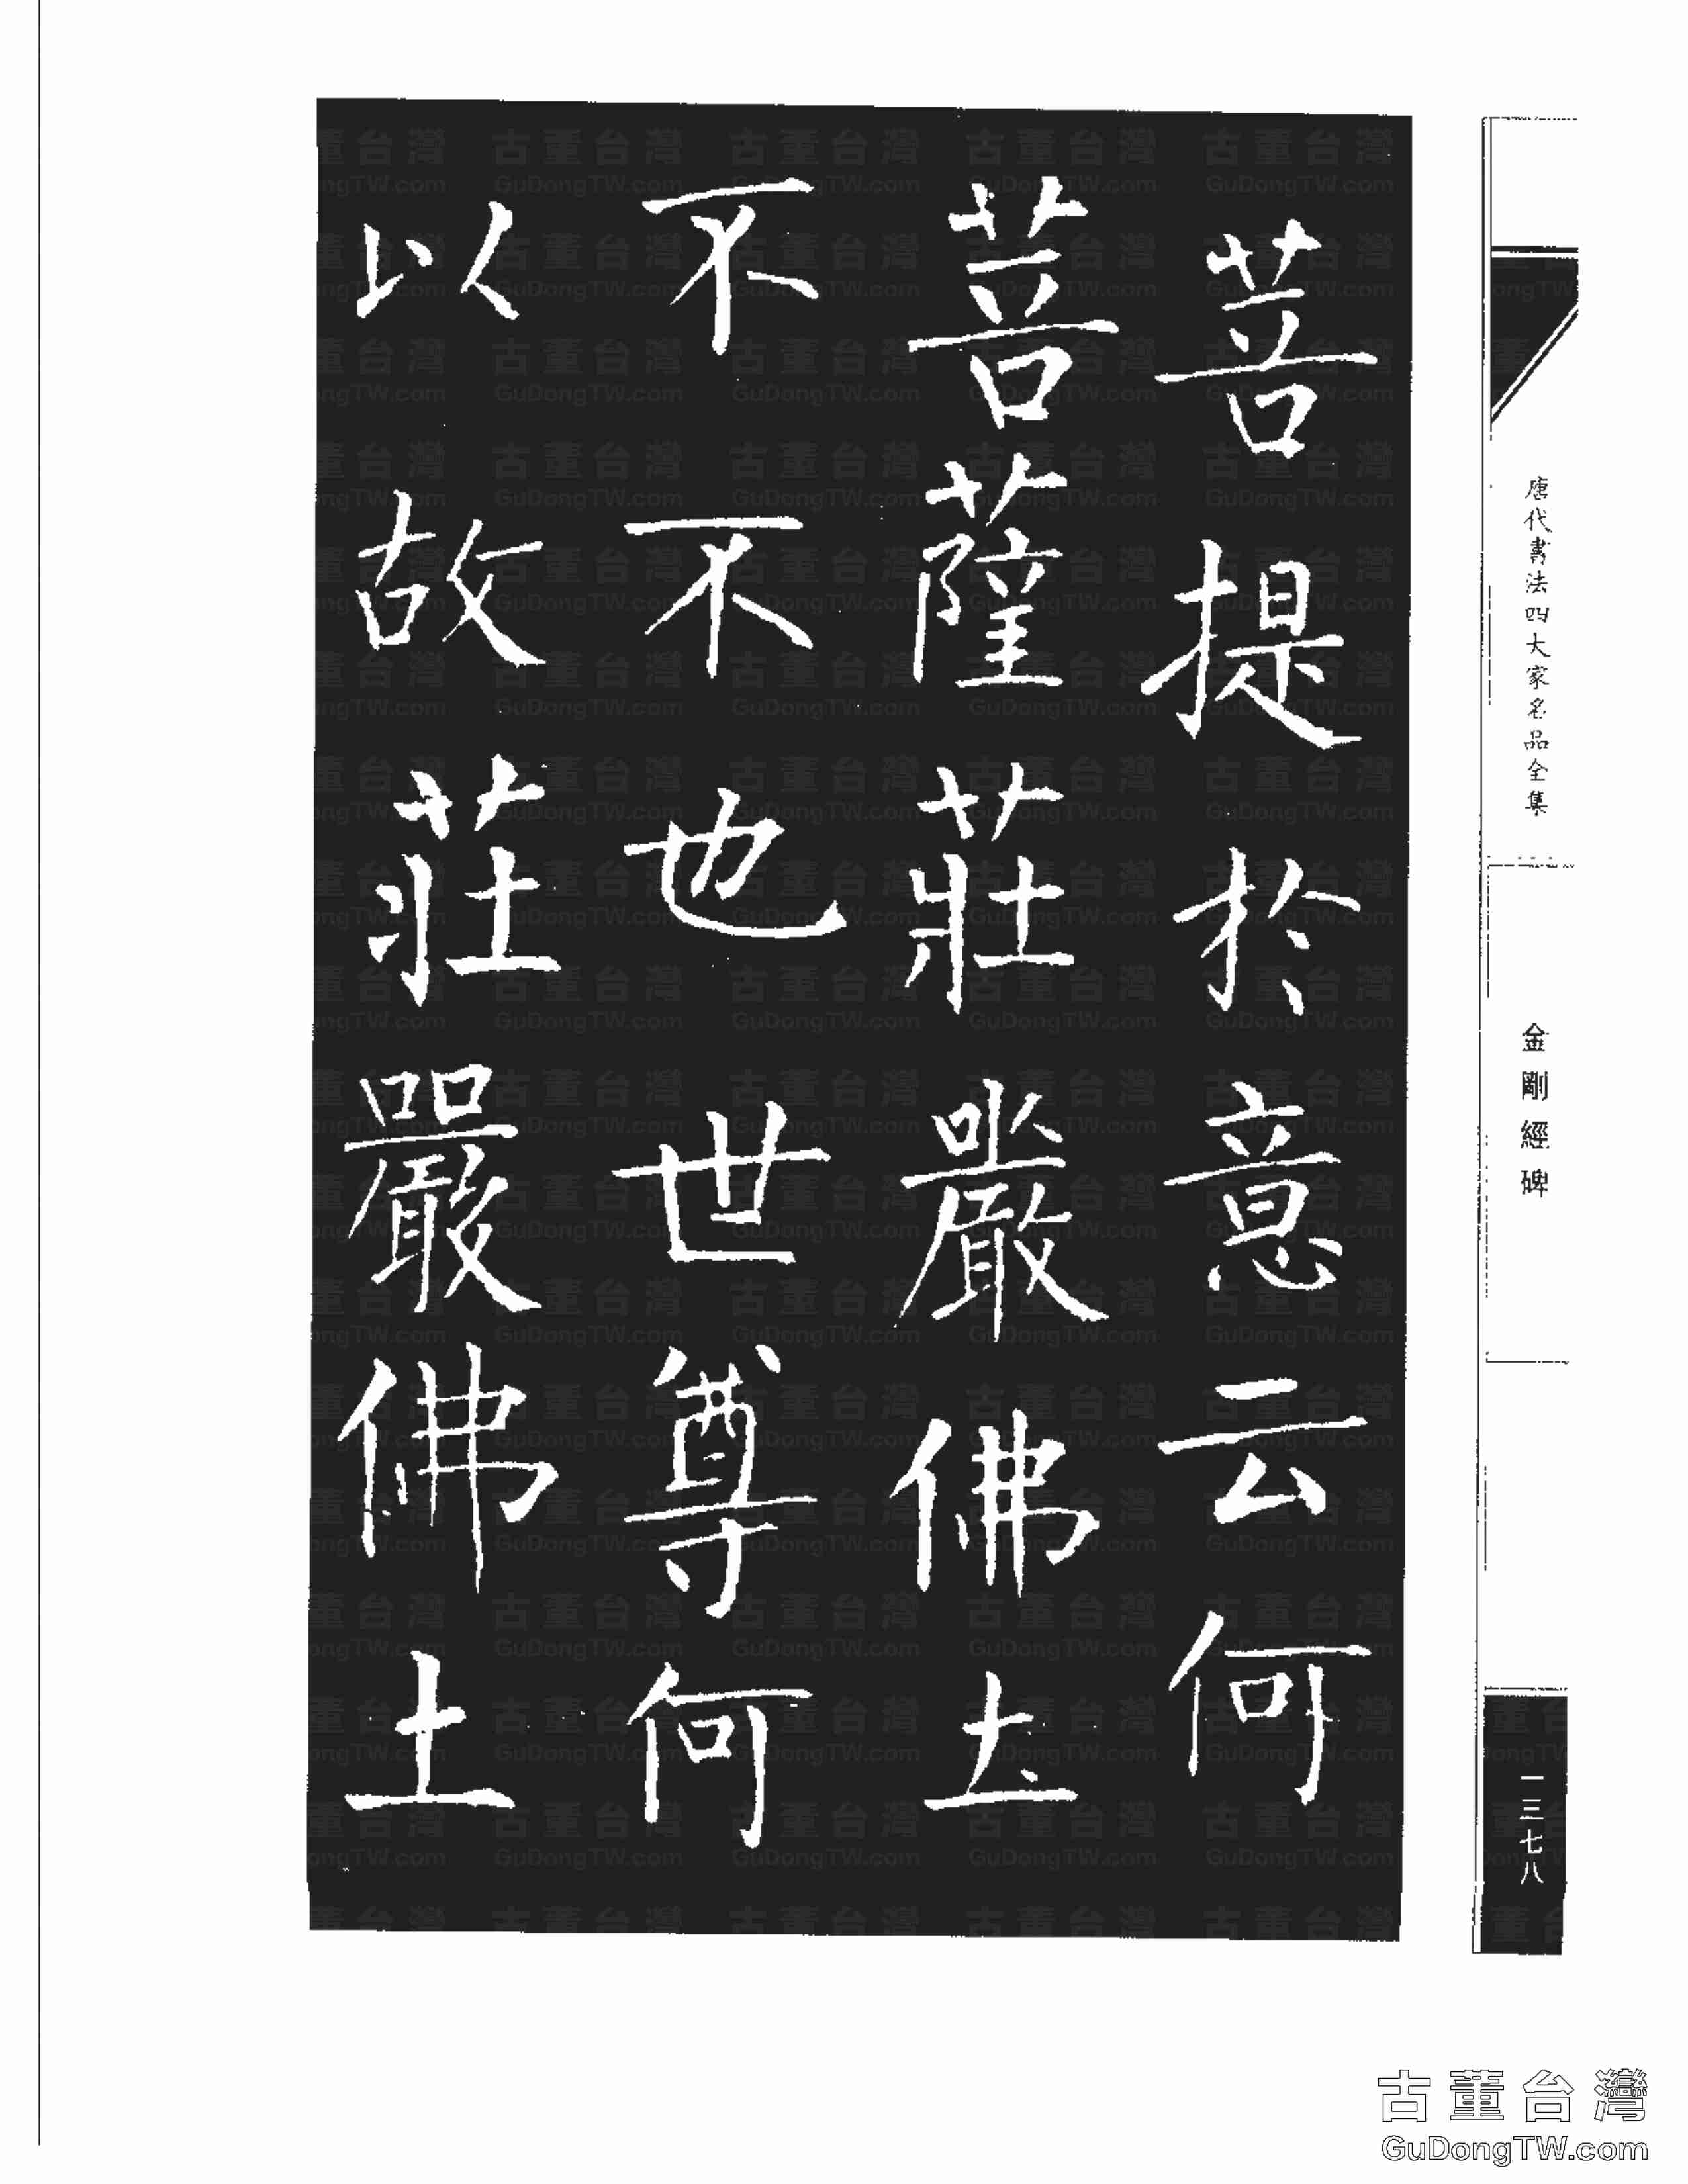 菩提於意云何
菩薩莊嚴佛土
不不也世尊何
以故莊嚴佛土
唐代書法四大家名品全集
金剛經碑
一三七八
古董台灣
GuDongTW.com